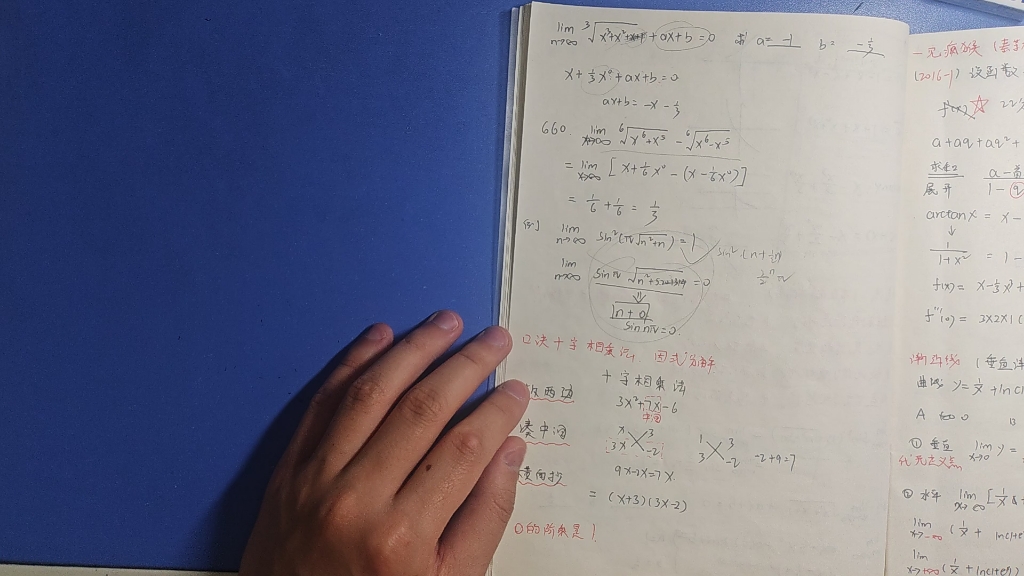 lim n→∞ ³√x³+x²+x+1 + ax+b = 0 求 a = -1 b = -1/3
x + 1/3 x⁰ + ax+b = 0
ax+b = -x - 1/3
660. lim x→∞ ⁶√x⁶+x⁵ - ⁶√x⁶-x⁵
= lim x→∞ [x + 1/6 x⁰ - (x - 1/6 x⁰)]
= 1/6 + 1/6 = 1/3
例] lim n→∞ sin²(π√n²+n) = 1
sin²·(n+½π)
½π
lim n→∞ sinπ √n²+ = 0
n+0
sin nπ=0.
口决十字相乘法, 因式分解
十字相乘法
拆两项
3x²+7x-6
中间
凑中间
x 3
3x -2
1 3
3 -2
-2+9=7
横向抄
9x-2x=7x
= (x+3)(3x-2)
0的阶乘是1.
(2016-1) 设函数
f(x) ☆
a+aq+aq²+
展开
1-q
arctanx = x-
↓
1/1+x² = 1-
f(x) = x-⅓x³+
f'''(0) = 3×2×1(
渐近线 (垂直
曲线 y=1/x+ln(
A
B
① 垂直 lim x→0 y =
代无定义点
② 水平 lim x→∞ [1/x
lim x→-∞ (1/x + ln(1+eˣ)
lim x→+∞ (1/x + ln(1+eˣ)